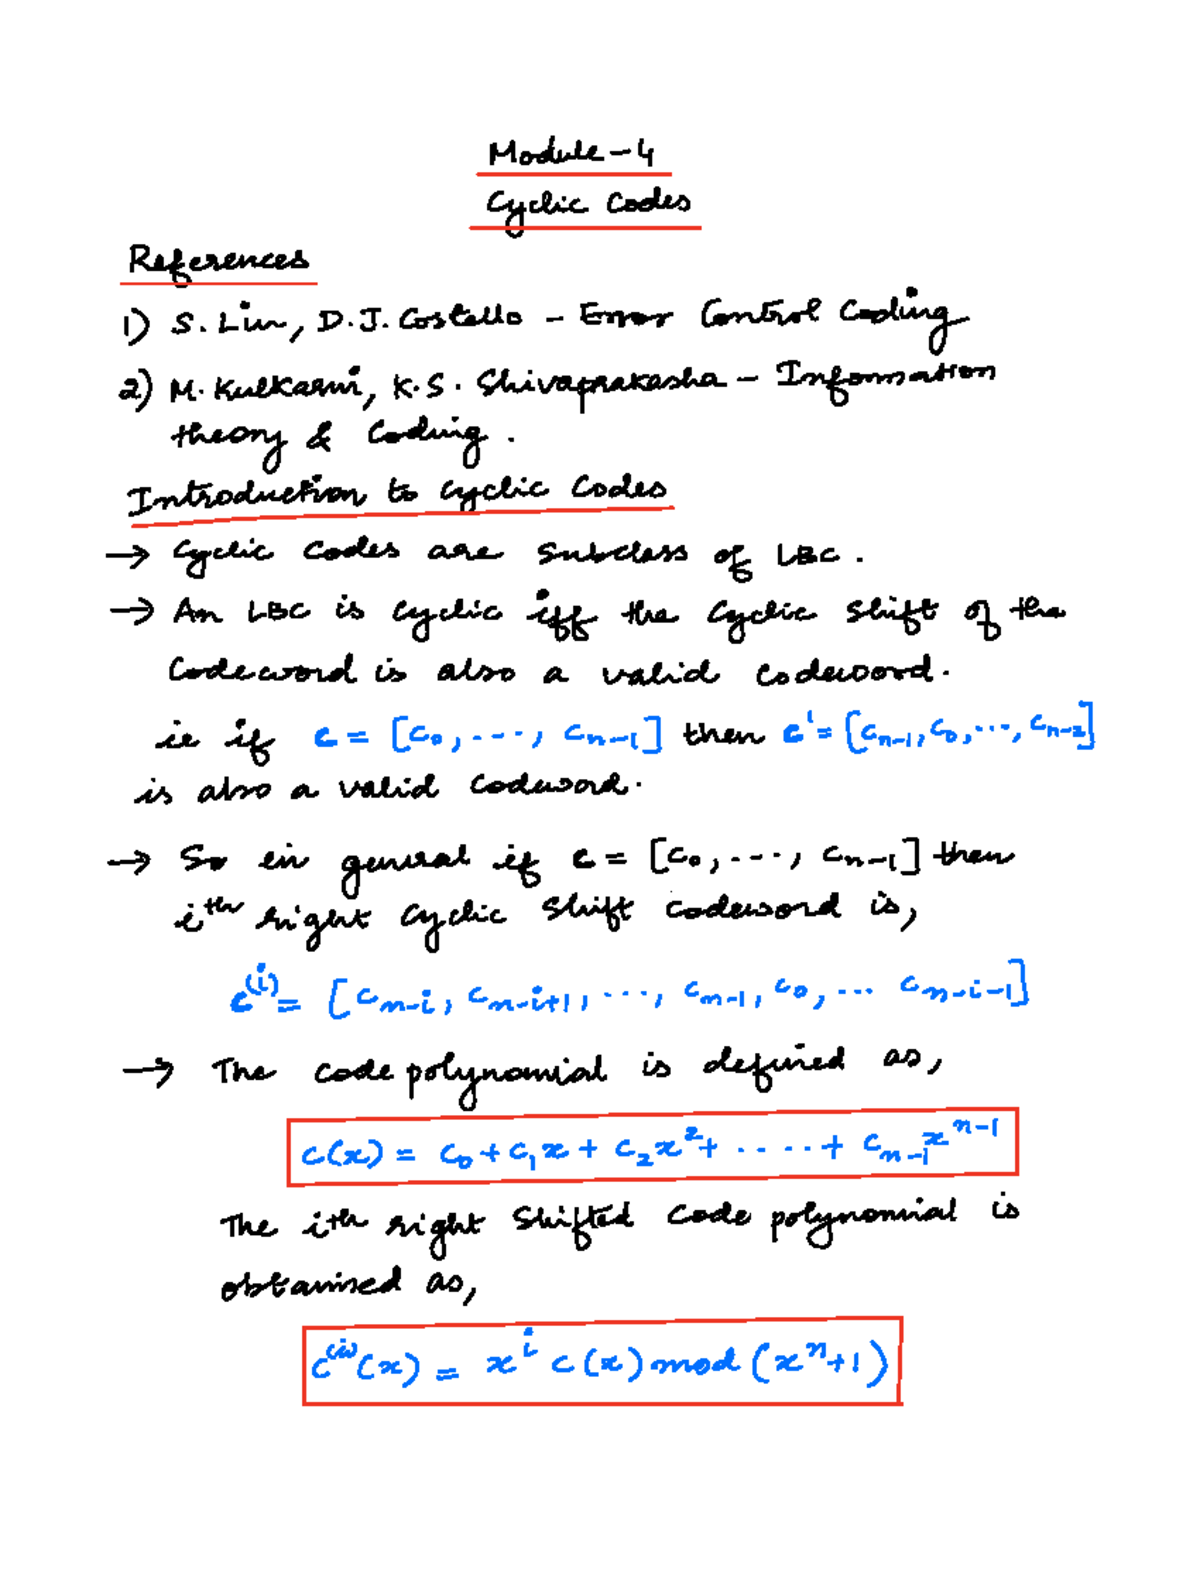 Module-4
Cyclic Codes
References
1) S. Lin, D.J. Costello - Error Control Coding
2) M. Kulkarni, K.S. Shivaprakasha - Information
theory & Coding.
Introduction to Cyclic Codes
→ Cyclic Codes are subclass of LBC.
→ An LBC is cyclic iff the cyclic shift of the
Codeword is also a valid codeword.
ie if c = [c₀, ---, cₙ₋₁] then c' = [cₙ₋₁, c₀, ..., cₙ₋₂]
is also a valid codeword.
→ So in general if c = [c₀, ---, cₙ₋₁] then
iᵗʰ right cyclic shift codeword is,
c⁽ⁱ⁾ = [cₙ₋ᵢ, cₙ₋ᵢ₊₁, ..., cₙ₋₁, c₀, ... cₙ₋ᵢ₋₁]
→ The code polynomial is defined as,
c(x) = c₀ + c₁x + c₂x² + ..... + cₙ₋₁xⁿ⁻¹
The iᵗʰ right shifted code polynomial is
obtained as,
c⁽ⁱ⁾(x) = xⁱ c(x) mod (xⁿ+1)